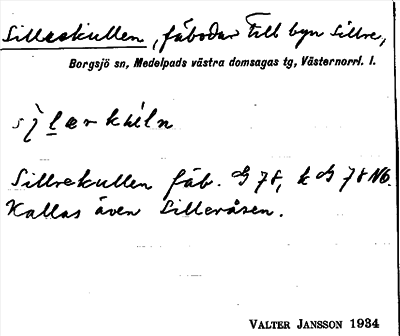 Silleskullen, fäbodar till byn Sillre,
Borgsjö sn, Medelpads västra domsagas tg, Västernorrl. l.
Sillrekullen fäb. G 78, k G 78 NÖ.
Kallas även Silleråsen.
VALTER JANSSON 1934